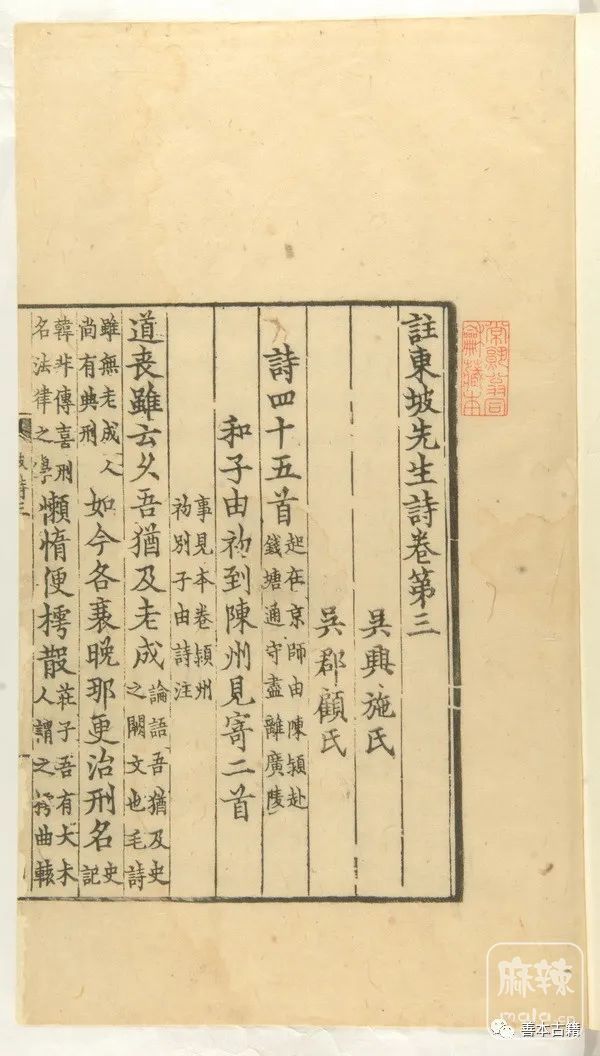 常熟翁同
龢藏本
註東坡先生詩卷第三
吳興施氏
吳郡顧氏
詩四十五首
起在京師由陳潁赴
錢塘通守盡離廣陵
和子由初到陳州見寄二首
事見本卷潁州
初別子由詩注
道喪雖云乆吾猶及老成
論語吾猶及史
之闕文也毛詩
雖無老成人
尚有典刑
如今各衰晚那更治刑名
史
記
韓非傳喜刑
名法律之學
懶惰便樗散
莊子吾有大木
人謂之樗曲轅
麻辣
mala.cn
善本古籍